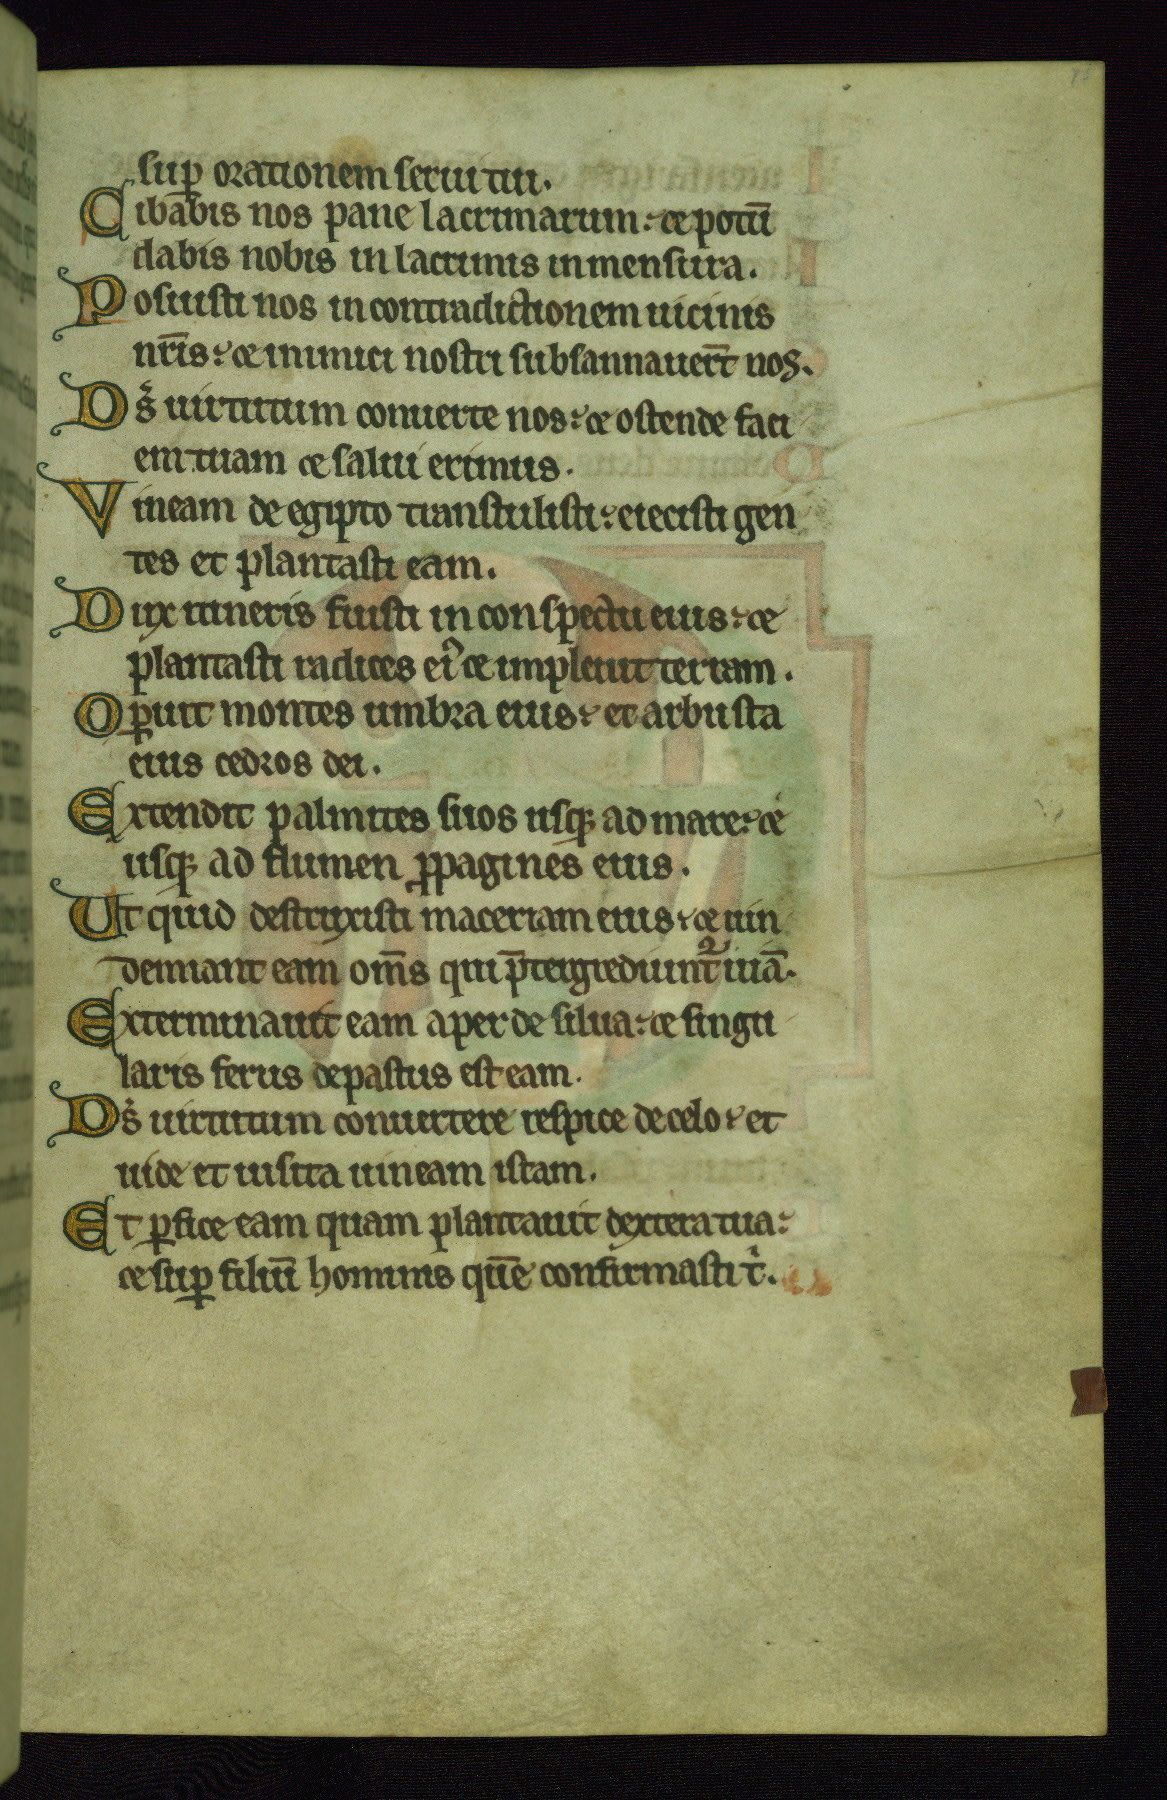 sup̄ orationem serui tui.
Cibabis nos pane lacrimarum: et potū
dabis nobis in lacrimis in mensura.
Posuisti nos in contradictionem uicinis
nr̄is: et inimici nostri subsannauer̄t nos.
Ds̄ uirtutum conuerte nos: et ostende faci
em tuam et salui erimus.
Vineam de egipto transtulisti: eiecisti gen
tes et plantasti eam.
Dux itineris fuisti in conspectu eius: et
plantasti radices ei᾽ et impleuit terram.
Op̱uit montes umbra eius: et arbusta
eius cedros dei.
Extendit palmites suos usq; ad mare: et
usq; ad flumen ꝓpagines eius.
Ut quid destruxisti maceriam eius: et uin
demiant eam om̄s qui p̄tergrediunt᷑ uiā.
Exterminauit eam aper de silua: et singu
laris ferus depastus est eam.
Ds̄ uirtutum conuertere respice de celo: et
uide et uisita uineam istam.
Et ꝑfice eam quam plantauit dextera tua:
et suꝑ filiū hominis quē confirmasti tⁱ.